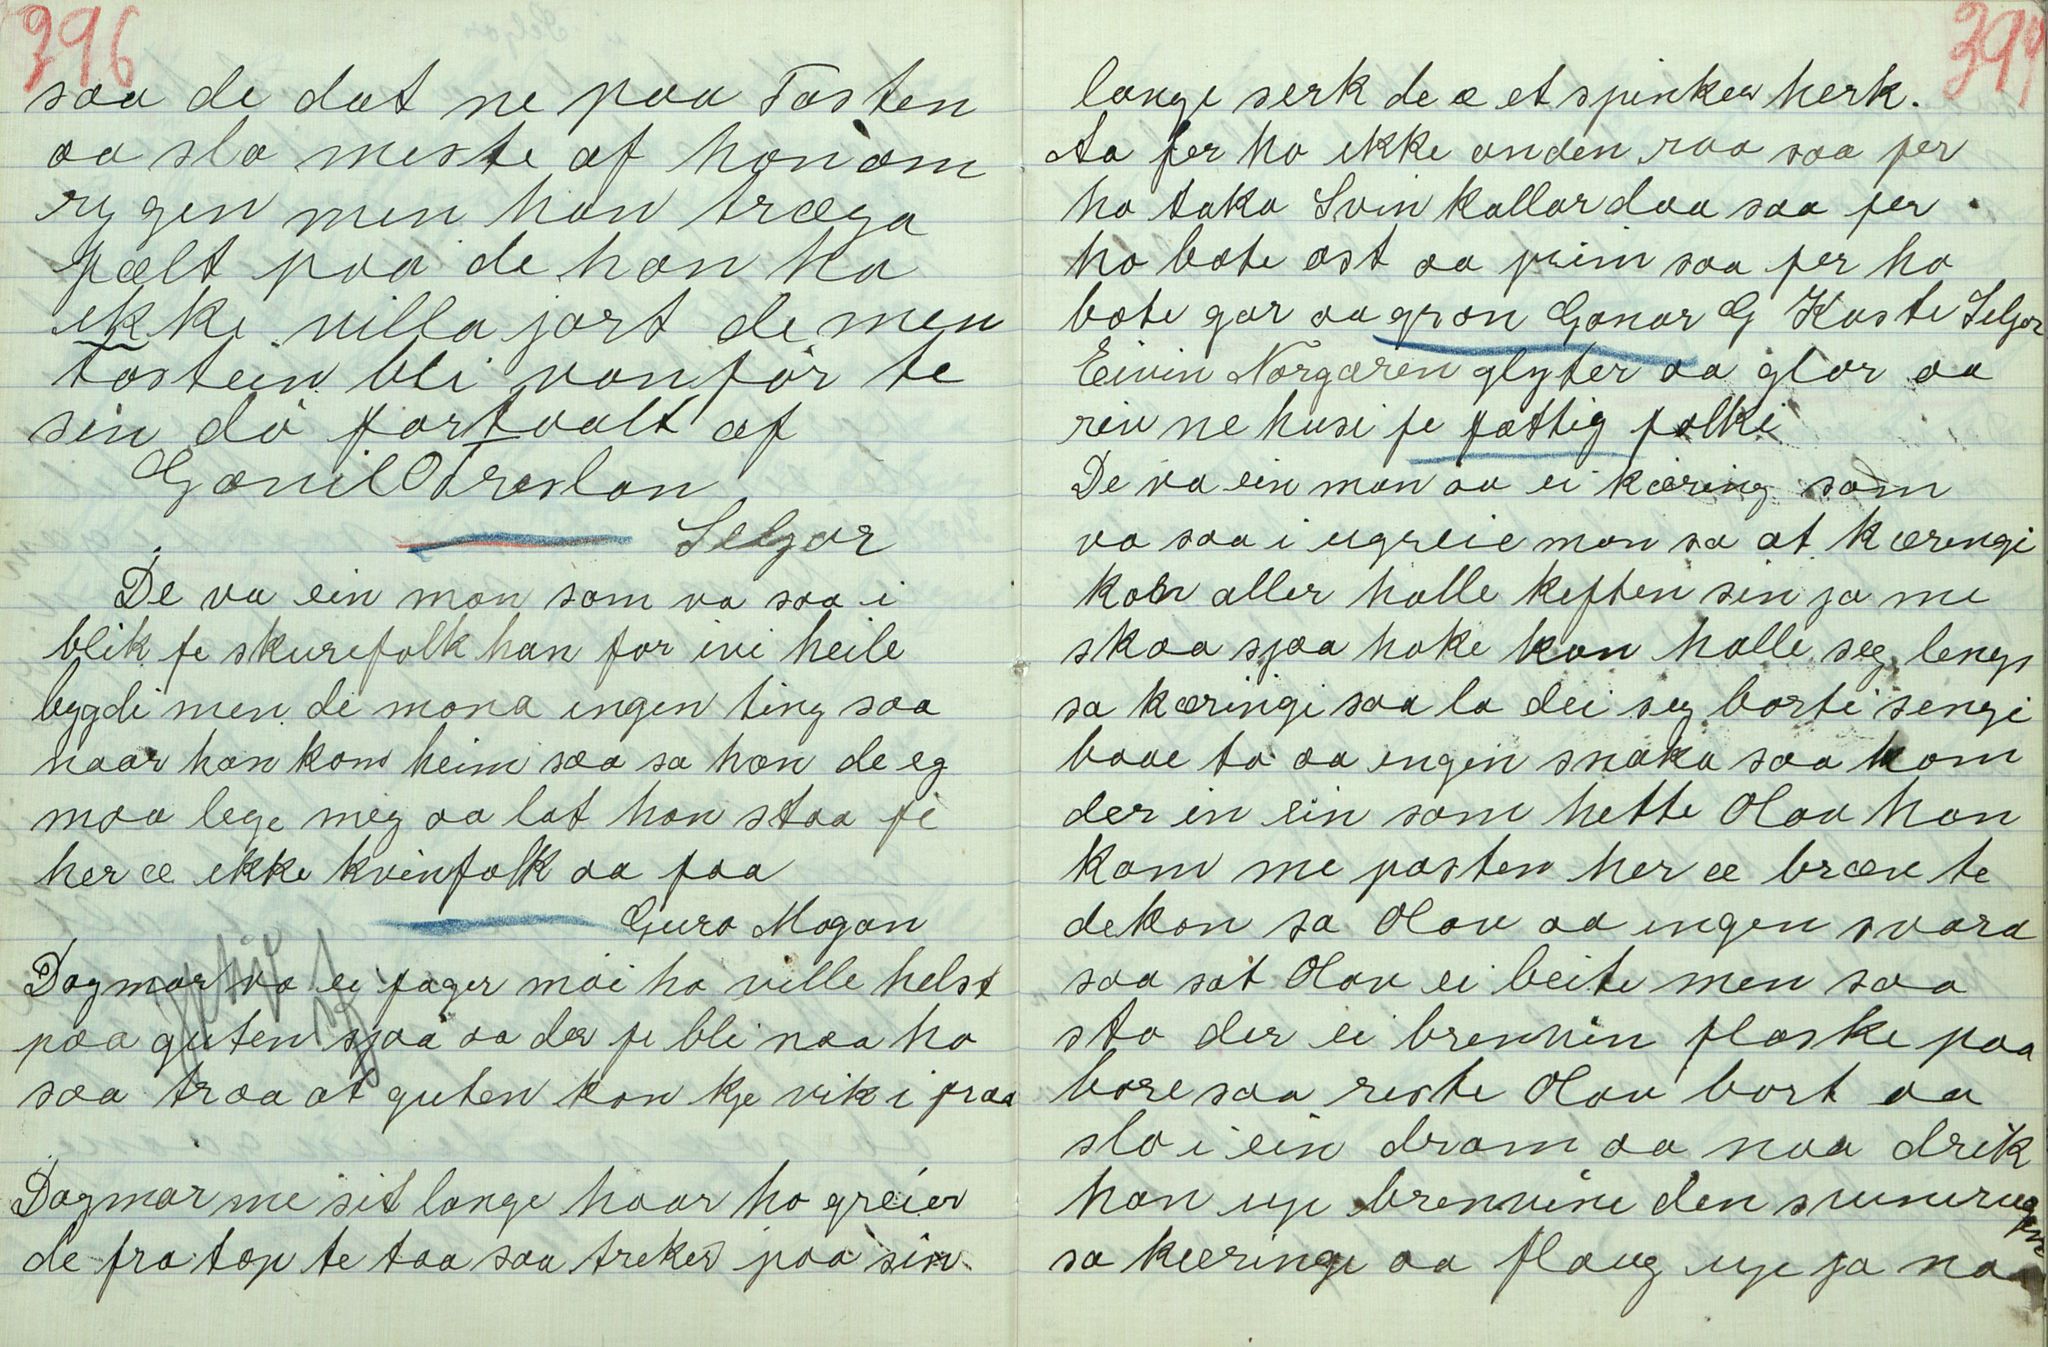 396
saa de dat ne paa Tosten
aa slo meste af honom
rygen men han træga
fælt paa de han ha
ikke villa jort de men
tostein bli vanför te
sin dö fortvalt af
Gonil Treslan
Selgor
De va ein man som va saa i
blik fe skurefolk han for ivi heile
bygdi men de mona ingen ting saa
naar han kom heim saa sa han de eg
maa lege meg aa lat han staa fe
her æ ikke kvinfolk aa faa
Guro Mogan
Dagmar va ei fager möi ho ville helst
paa guten sjaa aa der fe bli naa ho
saa traa at guten kan kje vik i fraa
Dagmar me sit lange haar ho greier
de fra top te taa saa treker paa sin
397
lange serk de æ et spinkea herk.
Aa fer ho ikke anden raa saa fer
ho taka Svin kallar daa saa fer
ho bate ost aa prim saa fer ho
bate gar aa gron Gonar G Kaste Selgor
Eivin Norgaren glyter aa glor aa
riv ne husi fe fattig folki
De va ein man aa ei kæring som
va saa i ugreie man sa at kæringi
kan aller halle keften sin ja me
skaa sjaa hoke kan halle seg lengs
sa kæringi saa la dei seg borti sengi
baae to aa engin snaka saa kom
der in ein som hette Olav han
kom me posten her æ bræv te
dekon sa Olav aa ingen svara
saa sat Olav ei beite men saa
sto der ei brenvin flaske paa
bore saa reste Olav bort aa
slo i ein dram aa naa drik
han up brenvine den
sa kæringi aa flaug up ja na